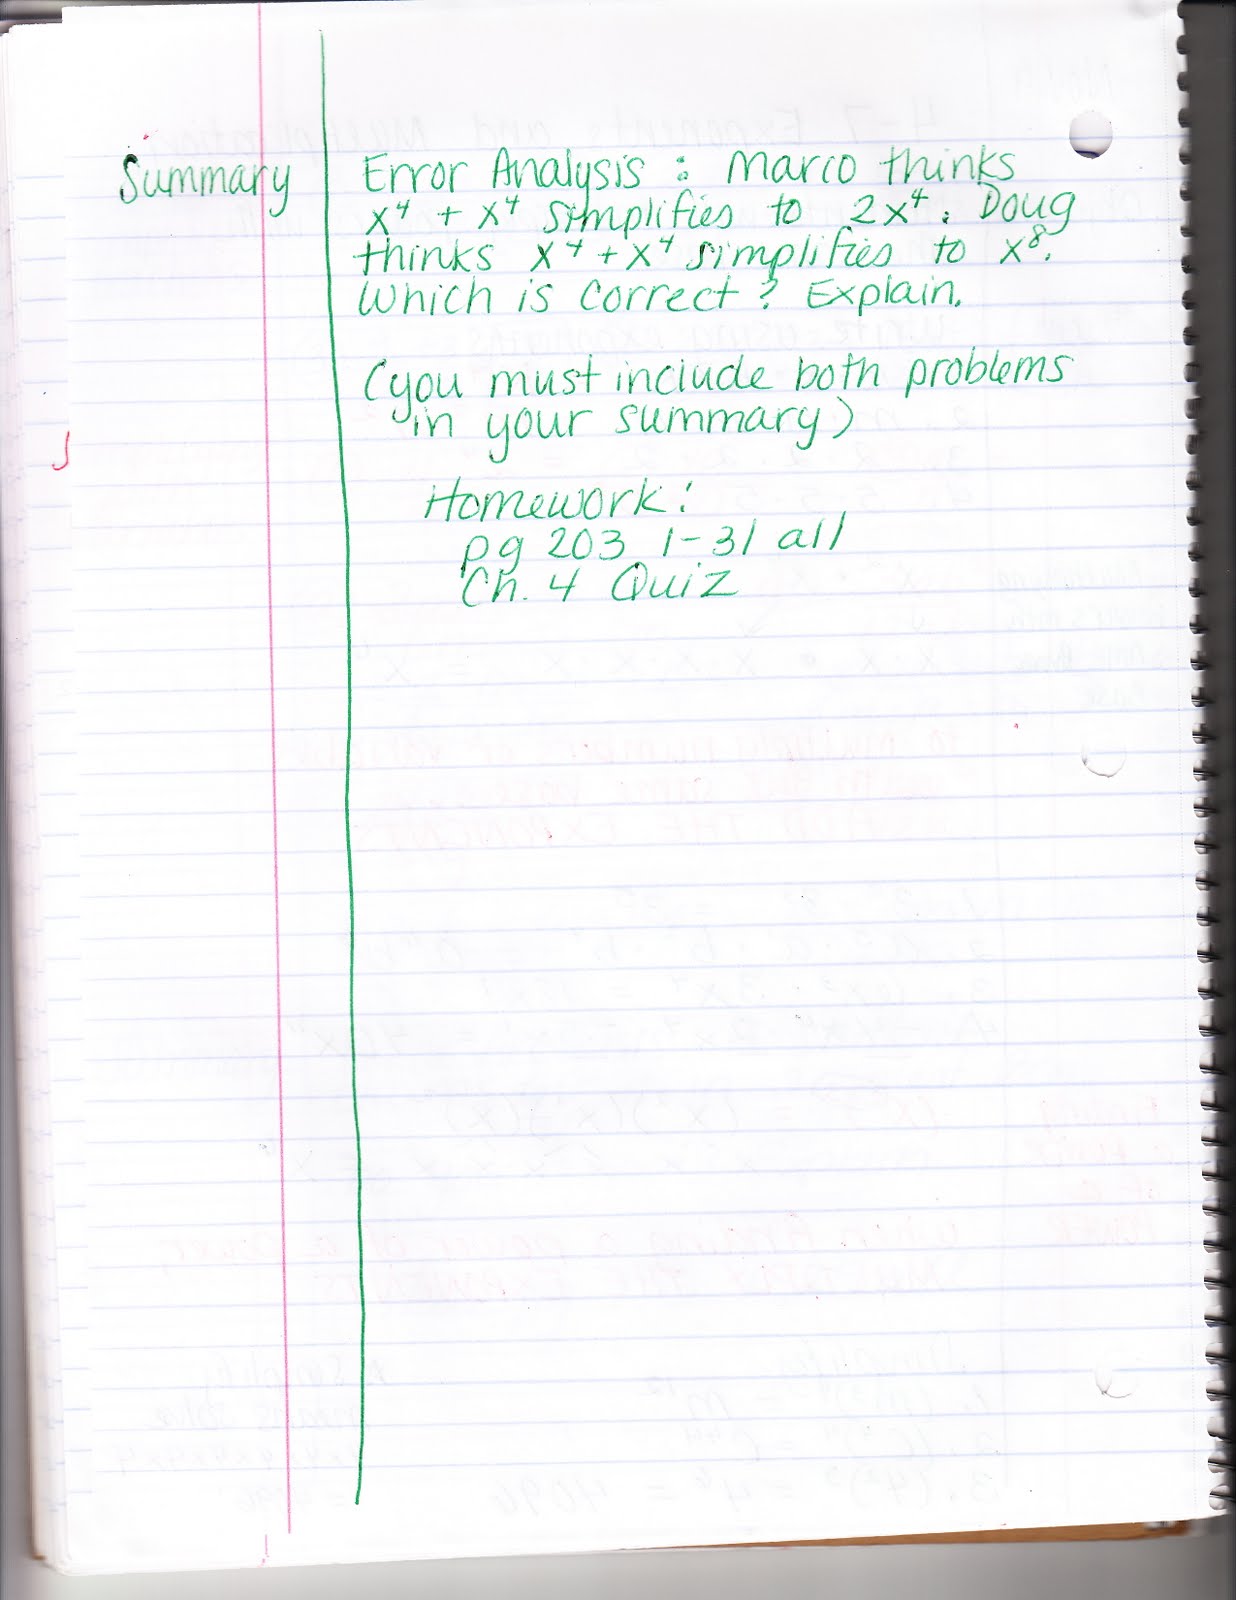 Summary
Error Analysis: Marco thinks
x⁴ + x⁴ simplifies to 2x⁴. Doug
thinks x⁴ + x⁴ simplifies to x⁸.
Which is correct? Explain.
(you must include both problems
in your summary)
Homework:
pg 203 1-31 all
Ch. 4 Quiz